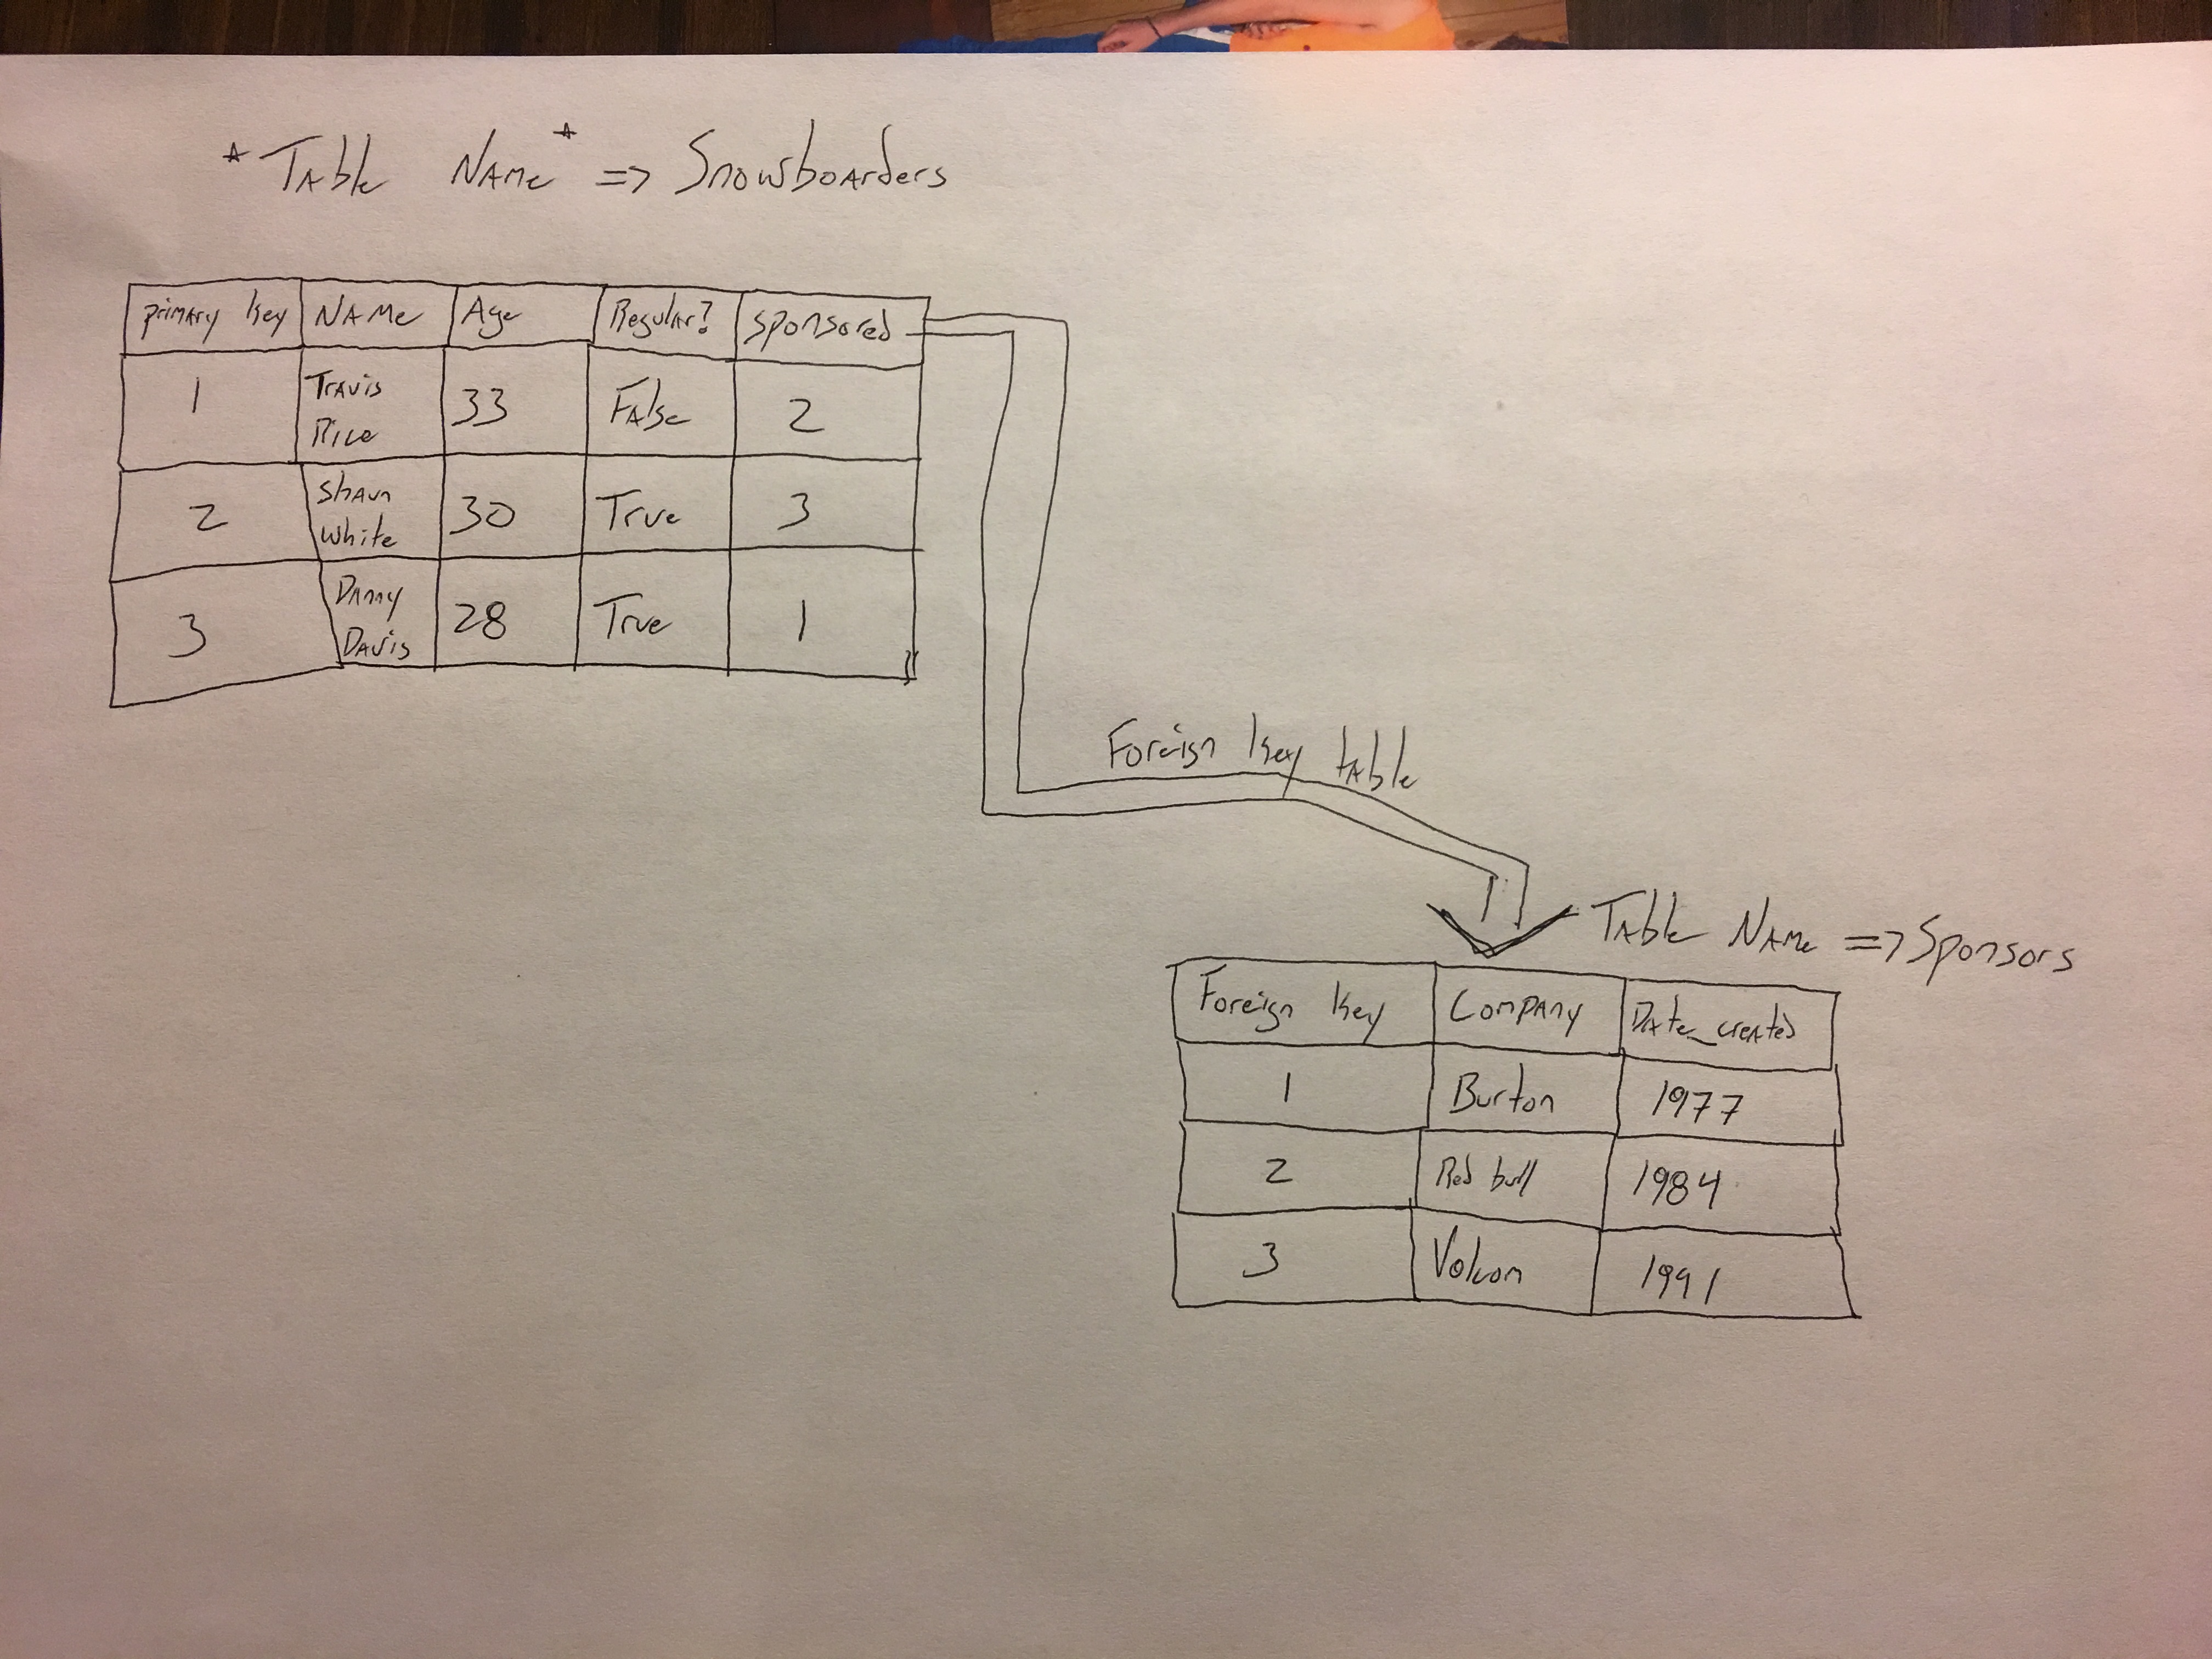 *Table Name* => Snowboarders
primary key Name Age Regular? Sponsored
1 Travis Rice 33 False 2
2 Shaun White 30 True 3
3 Danny Davis 28 True 1
Foreign key table
Table Name => Sponsors
Foreign key Company Date_created
1 Burton 1977
2 Red bull 1984
3 Volcon 1991